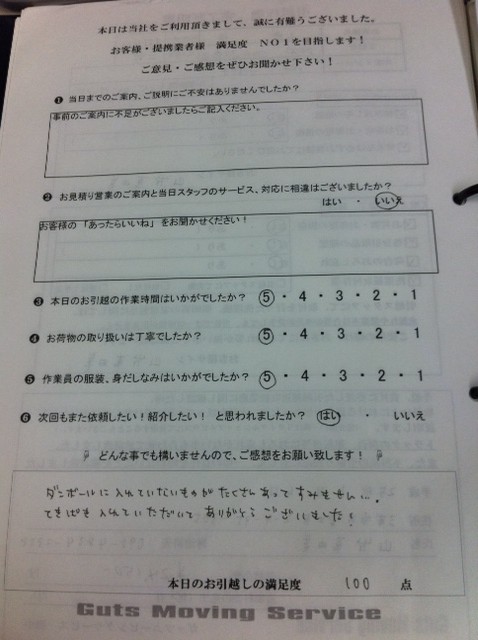 本日は当社をご利用頂きまして、誠に有難うございました。
お客様・提携業者様　満足度　NO1を目指します！
ご意見・ご感想をぜひお聞かせ下さい！
❶ 当日までのご案内、ご説明にご不安はありませんでしたか？
事前のご案内に不足がございましたらご記入ください。
❷ お見積り営業のご案内と当日スタッフのサービス、対応に相違はございましたか？
はい ・ いいえ
お客様の「あったらいいね」をお聞かせください！
❸ 本日のお引越の作業時間はいかがでしたか？ 5・4・3・2・1
❹ お荷物の取り扱いは丁寧でしたか？ 5・4・3・2・1
❺ 作業員の服装、身だしなみはいかがでしたか？ 5・4・3・2・1
❻ 次回もまた依頼したい！紹介したい！ と思われましたか？ はい ・ いいえ
どんな事でも構いませんので、ご感想をお願い致します！
ダンボールに入れていないものがたくさんあってすみません…。
てきぱき入れていただいてありがとうございました！
本日のお引越しの満足度 100 点
Guts Moving Service